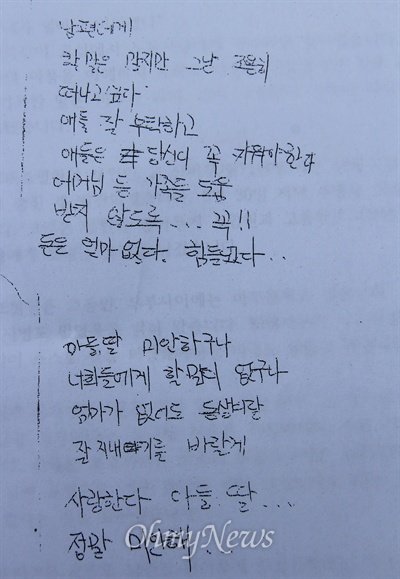 남편에게
할 말은 많지만 그냥 조용히
떠나고 싶다
애들 잘 부탁하고
애들은 당신이 꼭 키워야한다
어머님 등 가족들 도움
받지 않도록... 꼭!!
돈은 얼마 없다. 힘들었다..
아들,딸 미안하구나
너희들에게 할말이 없구나
엄마가 없어도
잘 지내기를 바랄게
사랑한다 아들 딸...
정말 미안해...
OhmyNews